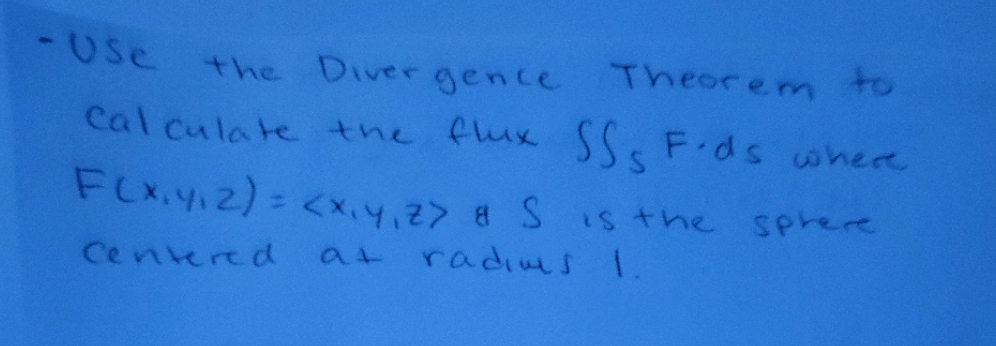 - Use the Divergence Theorem to
calculate the flux ∬s F·ds where
F(x,y,z) = <x,y,z> & S is the sphere
centered at radius 1.